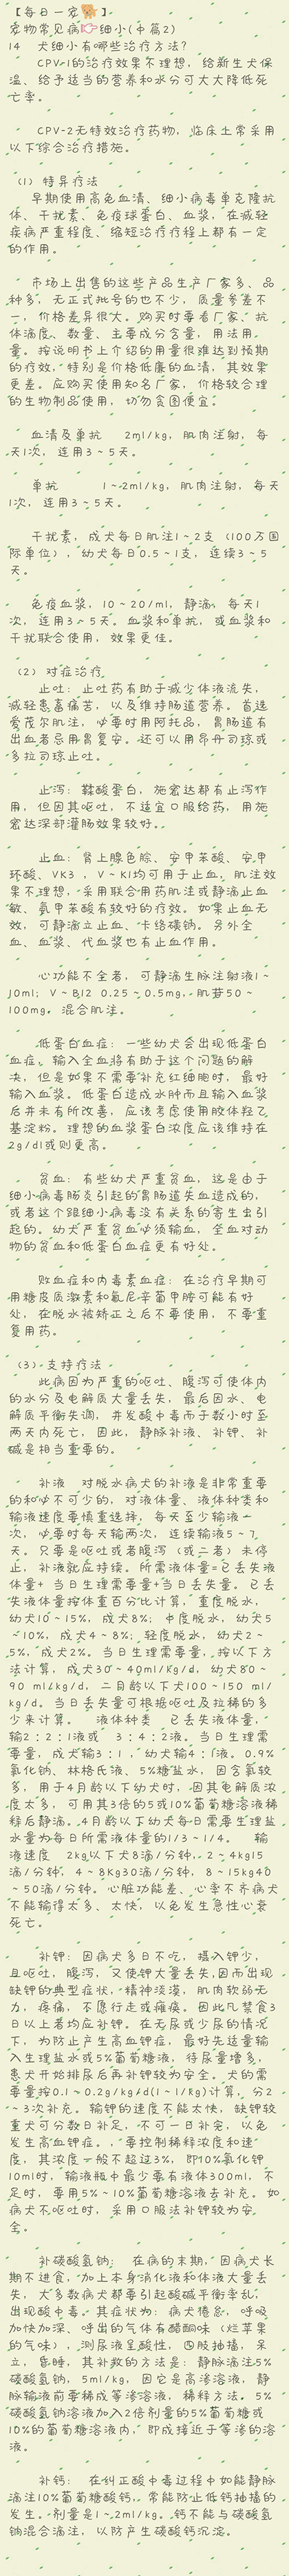 【每日一宠🐶】
宠物常见病👉细小(中篇2)
14 犬细小有哪些治疗方法?
CPV-1的治疗效果不理想, 给新生犬保
温、给予适当的营养和水分可大大降低死
亡率。
CPV-2无特效治疗药物, 临床上常采用
以下综合治疗措施。
(1) 特异疗法
早期使用高免血清、细小病毒单克隆抗
体、干扰素、免疫球蛋白、血浆, 在减轻
疾病严重程度、缩短治疗疗程上都有一定
的作用。
市场上出售的这些产品生产厂家多、品
种多, 无正式批号的也不少, 质量参差不
一, 价格差异很大。购买时要看厂家、抗
体滴度、数量、主要成分含量, 用法用
量。按说明书上介绍的用量很难达到预期
的疗效, 特别是价格低廉的血清, 其效果
更差。应购买使用知名厂家, 价格较合理
的生物制品使用, 切勿贪图便宜。
血清及单抗 2ml/kg, 肌肉注射, 每
天1次, 连用3~5天。
单抗 1~2ml/kg, 肌肉注射, 每天
1次, 连用3~5天。
干扰素, 成犬每日肌注1~2支 (100万国
际单位) , 幼犬每日0.5~1支, 连续3~5
天。
免疫血浆, 10~20/ml, 静滴, 每天1
次, 连用3~5天。血浆和单抗, 或血浆和
干扰联合使用, 效果更佳。
(2) 对症治疗
止吐: 止吐药有助于减少体液流失,
减轻患畜痛苦, 以及维持肠道营养。首选
爱茂尔肌注, 必要时用阿托品, 胃肠道有
出血者忌用胃复安。还可以用昂丹司琼或
多拉司琼止吐。
止泻: 鞣酸蛋白, 施宏达都有止泻作
用, 但因其呕吐, 不适宜口服给药, 用施
宏达深部灌肠效果较好。
止血: 肾上腺色腙、安甲苯酸、安甲
环酸、VK3 , V~K1均可用于止血, 肌注效
果不理想, 采用联合用药肌注或静滴止血
敏、氨甲苯酸有较好的疗效。如果止血无
效, 可静滴立止血、卡络磺钠。另外全
血、血浆、代血浆也有止血作用。
心功能不全者, 可静滴生脉注射液1~
10ml; V~B12 0.25~0.5mg, 肌苷50~
100mg。混合肌注。
低蛋白血症: 一些幼犬会出现低蛋白
血症, 输入全血将有助于这个问题的解
决, 但是如果不需要补充红细胞时, 最好
输入血浆。低蛋白造成水肿而且输入血浆
后并未有所改善, 应该考虑使用胶体羟乙
基淀粉。理想的血浆蛋白浓度应该维持在
2g/dl或则更高。
贫血: 有些幼犬严重贫血, 这是由于
细小病毒肠炎引起的胃肠道失血造成的,
或者这个跟细小病毒没有关系的寄生虫引
起的。幼犬严重贫血必须输血, 全血对动
物的贫血和低蛋白血症更有好处。
败血症和内毒素血症: 在治疗早期可
用糖皮质激素和氟尼辛葡甲胺可能有好
处, 在脱水被矫正之后不要使用, 不要重
复用药。
(3) 支持疗法
此病因为严重的呕吐、腹泻可使体内
的水分及电解质大量丢失, 最后因水、电
解质平衡失调, 并发酸中毒而于数小时至
两天内死亡, 因此, 静脉补液、补钾、补
碱是相当重要的。
补液 对脱水病犬的补液是非常重要
的和必不可少的, 对液体量、液体种类和
输液速度要慎重选择, 每天至少输液一
次, 必要时每天输两次, 连续输液5~7
天。只要是呕吐或者腹泻 (或二者) 未停
止, 补液就应持续。所需液体量=已丢失液
体量+ 当日生理需要量+当日丢失量。已丢
失液体量按体重百分比计算, 重度脱水,
幼犬10~15%, 成犬8%; 中度脱水, 幼犬5
~10%, 成犬4~8%; 轻度脱水, 幼犬2~
5%, 成犬2%。当日生理需要量, 按以下方
法计算, 成犬30~40ml/Kg/d, 幼犬80~
90 mlkg/d, 二月龄以下犬100~150 ml/
kg/d。当日丢失量可根据呕吐及拉稀的多
少来计算。 液体种类 已丢失液体量,
输2:2:1液或 3:4:2液。当日生理需
要量, 成犬输3:1, 幼犬输4:1液。0.9%
氯化钠、林格氏液、5%糖盐水, 因含氯较
多, 用于4月龄以下幼犬时, 因其电解质浓
度太多, 可用其3倍的5或10%葡萄糖溶液稀
释后静滴。4月龄以下幼犬每日需要生理盐
水量为每日所需液体量的1/3~1/4。 输
液速度 2kg以下犬8滴/分钟, 2~4kg15
滴/分钟, 4~8Kg30滴/分钟, 8~15kg40
~50滴/分钟。心脏功能差、心率不齐病犬
不能输得太多、太快, 以免发生急性心衰
死亡。
补钾: 因病犬多日不吃, 摄入钾少,
且呕吐, 腹泻, 又使钾大量丢失,因而出现
缺钾的典型症状, 精神淡漠, 肌肉软弱无
力, 疼痛, 不愿行走或瘫痪。因此凡禁食3
日以上者均应补钾。在无尿或少尿的情况
下, 为防止产生高血钾症, 最好先适量输
入生理盐水或5%葡萄糖液, 待尿量增多,
患犬开始排尿后再补钾较为安全。犬的需
要量按0.1~0.2g/kg/d(1~1/Kg)计算, 分2
~3次补充。输钾的速度不能太快, 缺钾较
重犬可分数日补足, 不可一日补完, 以免
发生高血钾症。, 要控制稀释浓度和速
度, 其浓度一般不超过3%, 即10%氯化钾
10ml时, 输液瓶中最少要有液体300ml, 不
足时, 要用5%~10%葡萄糖溶液去补充。如
病犬不呕吐时, 采用口服法补钾较为安
全。
补碳酸氢钠: 在病的末期, 因病犬长
期不进食, 加上本身消化液和体液大量丢
失, 大多数病犬都要引起酸碱平衡紊乱,
出现酸中毒。其症状为: 病犬倦怠, 呼吸
加快加深、呼出的气体有醋酮味 (烂苹果
的气味) , 测尿液呈酸性, 四肢抽搐, 呆
立, 昏睡, 其补救的方法是: 静脉滴注5%
碳酸氢钠, 5ml/kg, 因它是高渗溶液, 静
脉输液前要稀成等渗溶液, 稀释方法。5%
碳酸氢钠溶液加入2倍剂量的5%葡萄糖或
10%的葡萄糖溶液内, 即成接近于等渗的溶
液。
补钙: 在纠正酸中毒过程中如能静脉
滴注10%葡萄糖酸钙, 常能防止低钙抽搐的
发生。剂量是1~2ml/kg。钙不能与碳酸氢
钠混合滴注, 以防产生碳酸钙沉淀。